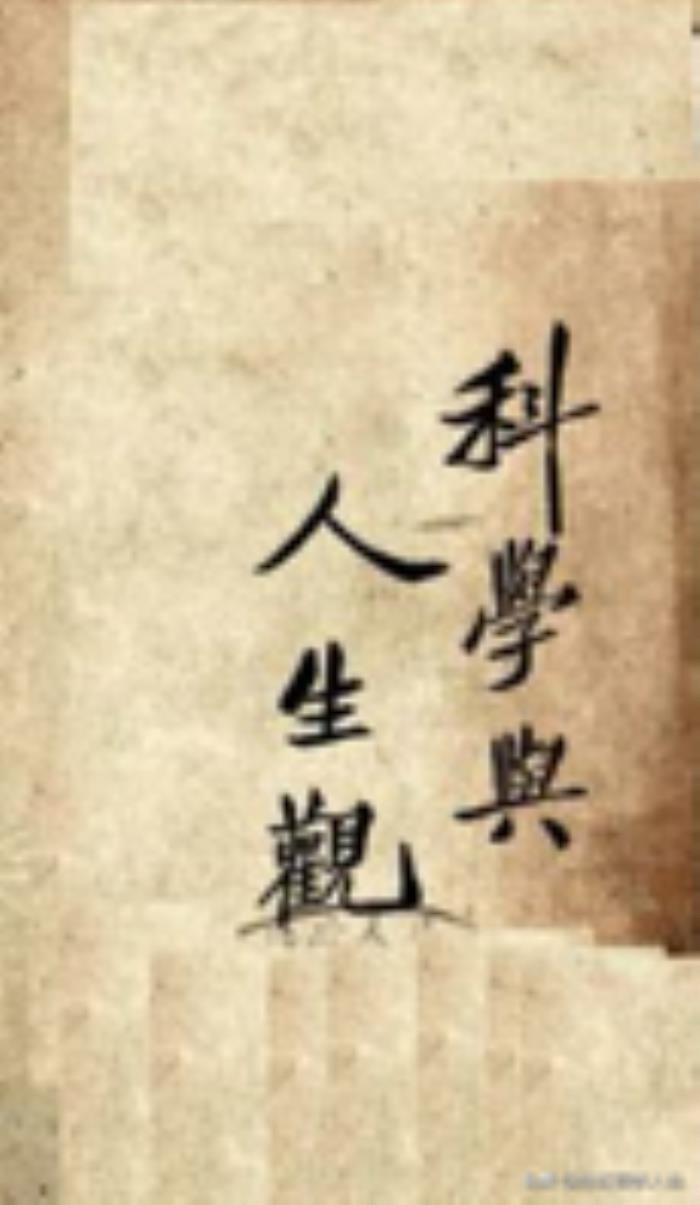 科學與
人生觀